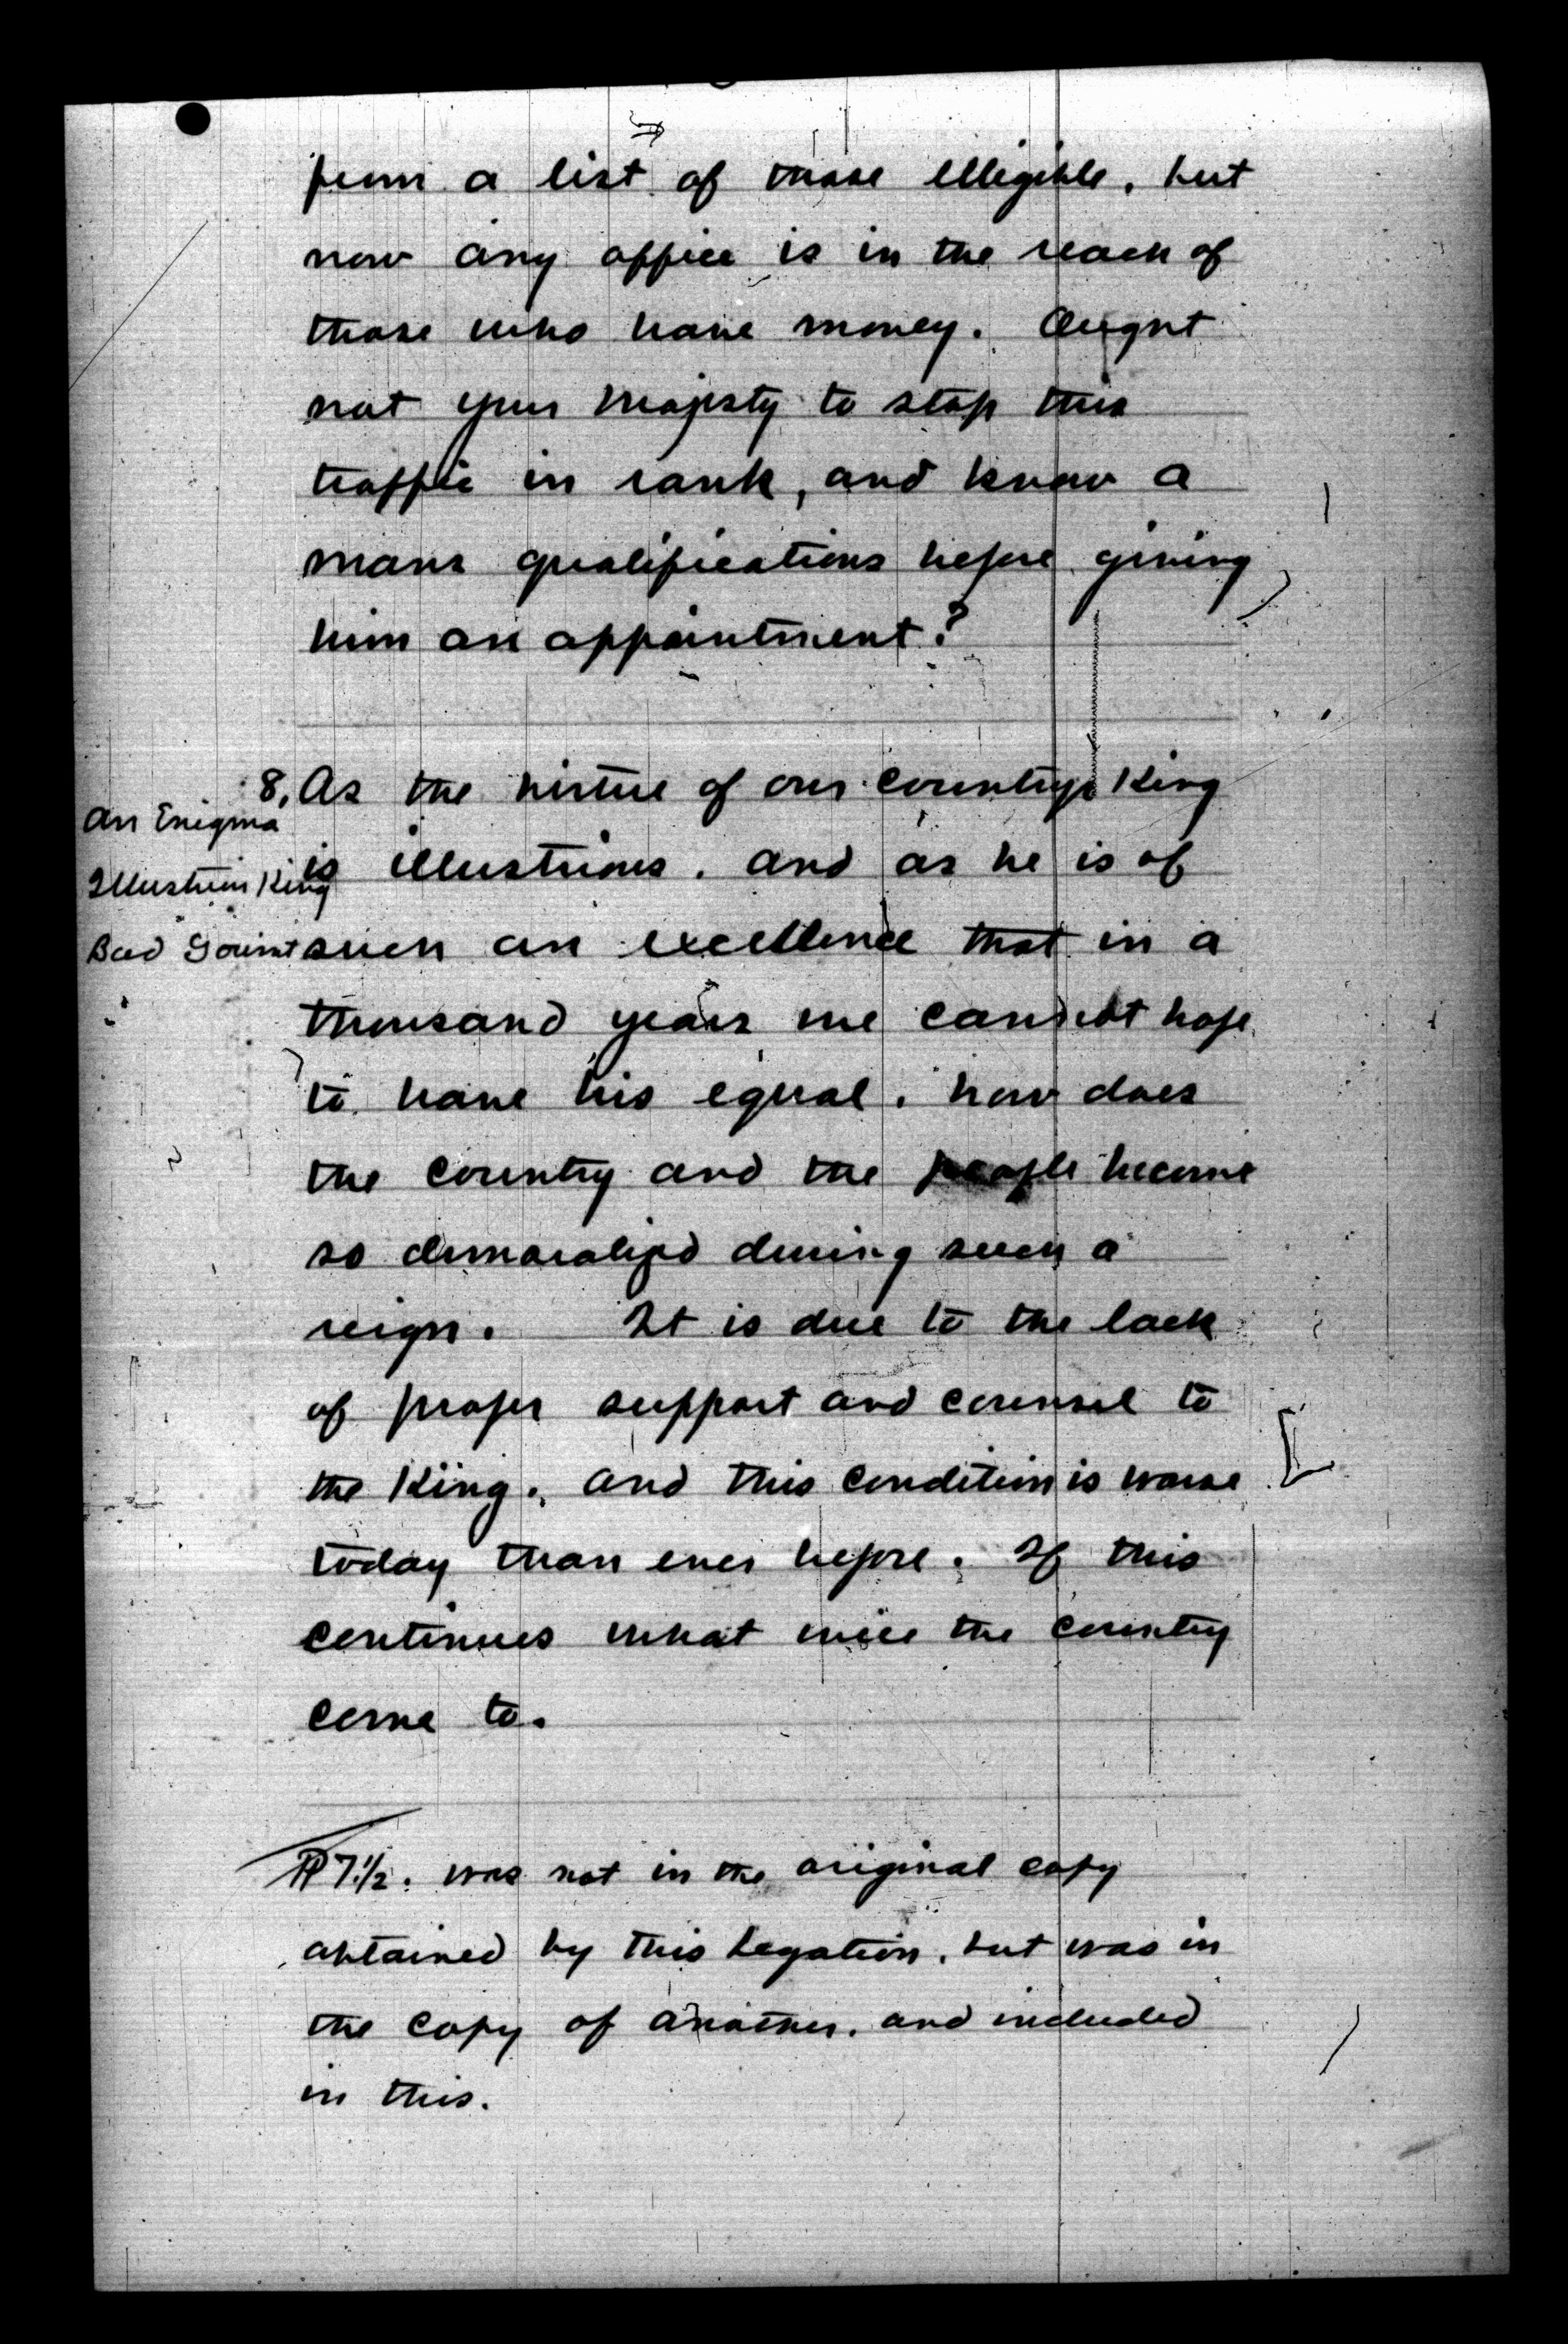 from a list of those elligible, but
now any office is in the reach of
those who have money. Ought
not your Majesty to stop this
traffic in rank, and know a
mans qualifications before giving
him an appointment?
8, As the virtue of our countrys King
An Enigma
is illustrious, and as he is of
Illustrious King
such an excellence that in a
Bad Govmt
thousand years we cannot hope
to have his equal, how does
the country and the people become
so demoralized during such a
reign. It is due to the lack
of proper support and counsel to
the King, and this condition is worse
today than ever before. If this
continues what will the country
come to.
PP 7.1/2. was not in the original copy
obtained by this Legation, but was in
the copy of another, and included
in this.